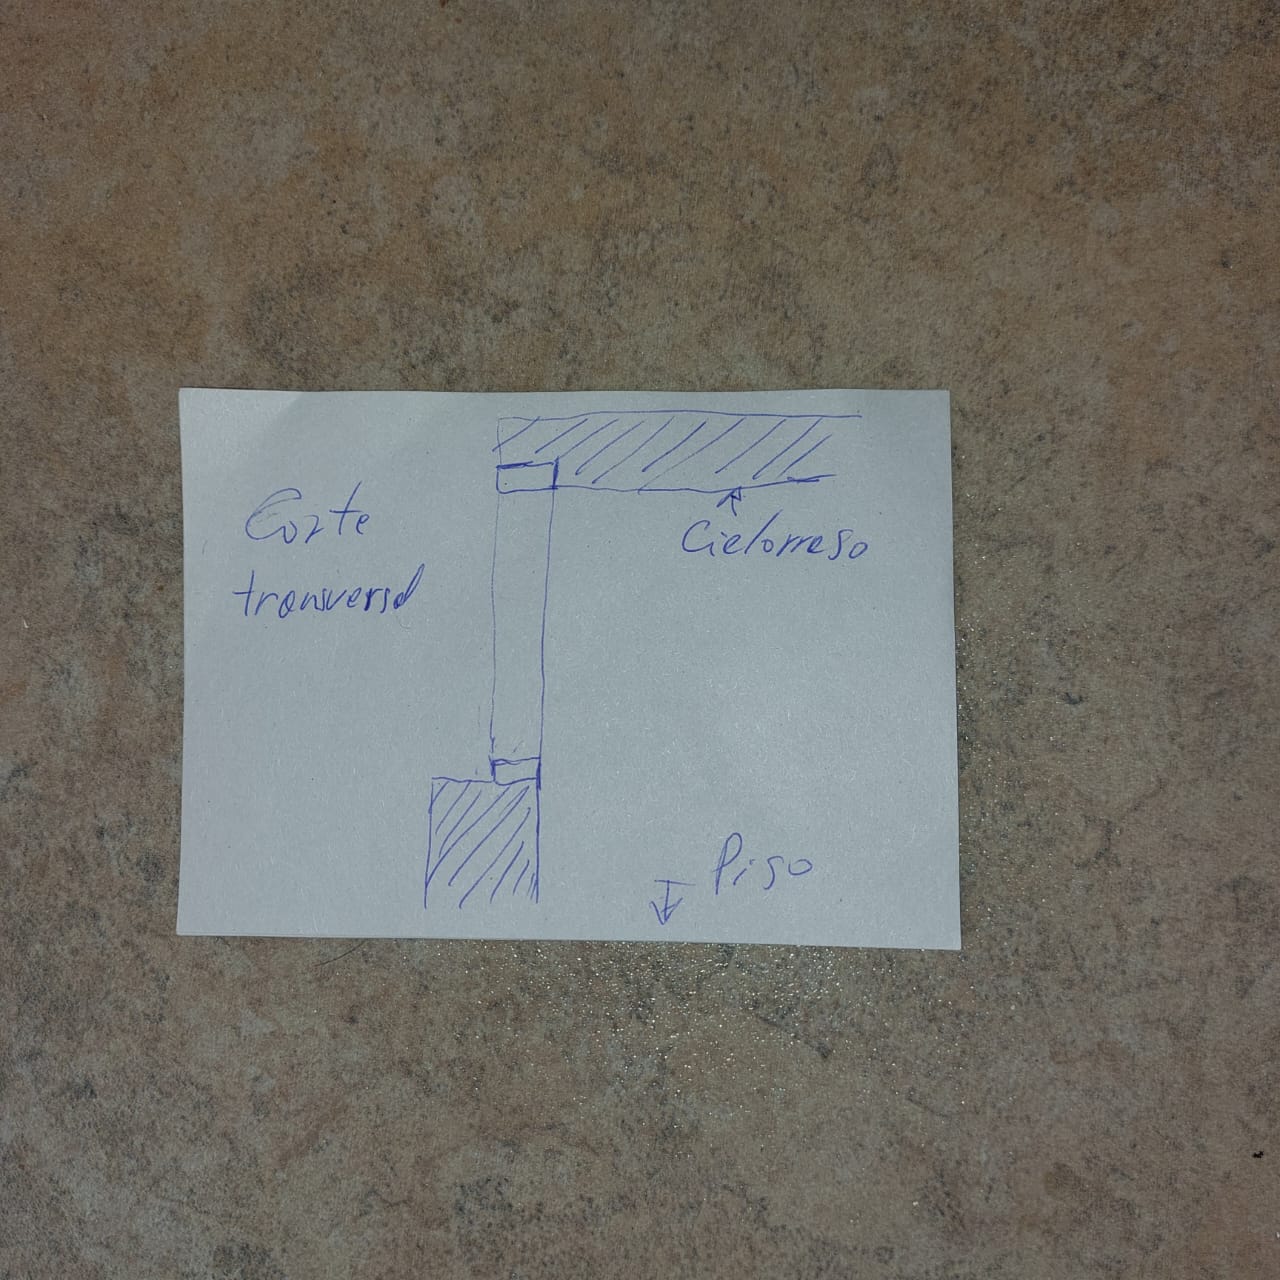 Corte
transversal
Cielorraso
Piso